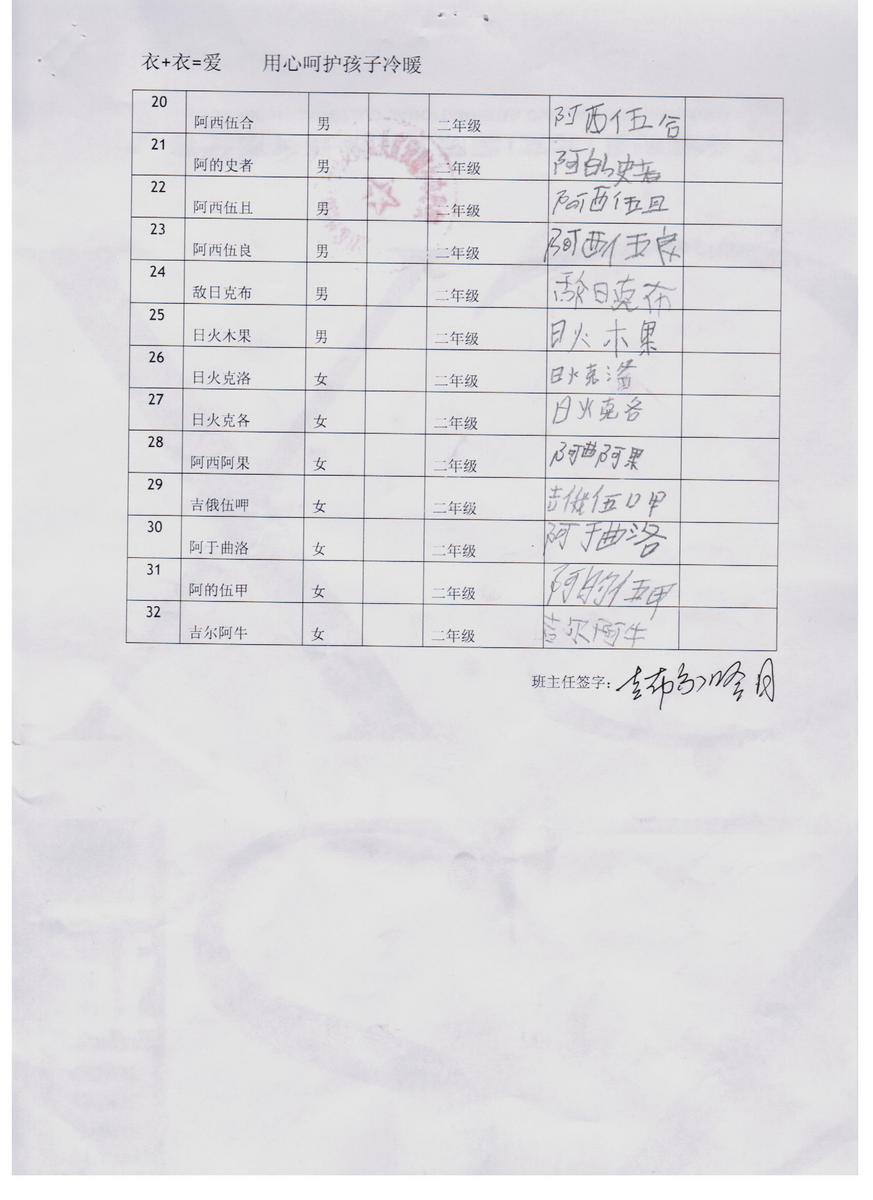 衣+衣=爱 用心呵护孩子冷暖
20 阿西伍合 男 二年级 阿西伍合
21 阿的史者 男 二年级 阿的史者
22 阿西伍且 男 二年级 阿西伍且
23 阿西伍良 男 二年级 阿西伍良
24 敌日克布 男 二年级 日克布
25 日火木果 男 二年级 日火木果
26 日火克洛 女 二年级 日火克洛
27 日火克各 女 二年级 日火克各
28 阿西阿果 女 二年级 阿西阿果
29 吉俄伍呷 女 二年级 吉俄伍呷
30 阿于曲洛 女 二年级 阿于曲洛
31 阿的伍甲 女 二年级 阿的伍甲
32 吉尔阿牛 女 二年级 吉尔阿牛
班主任签字: